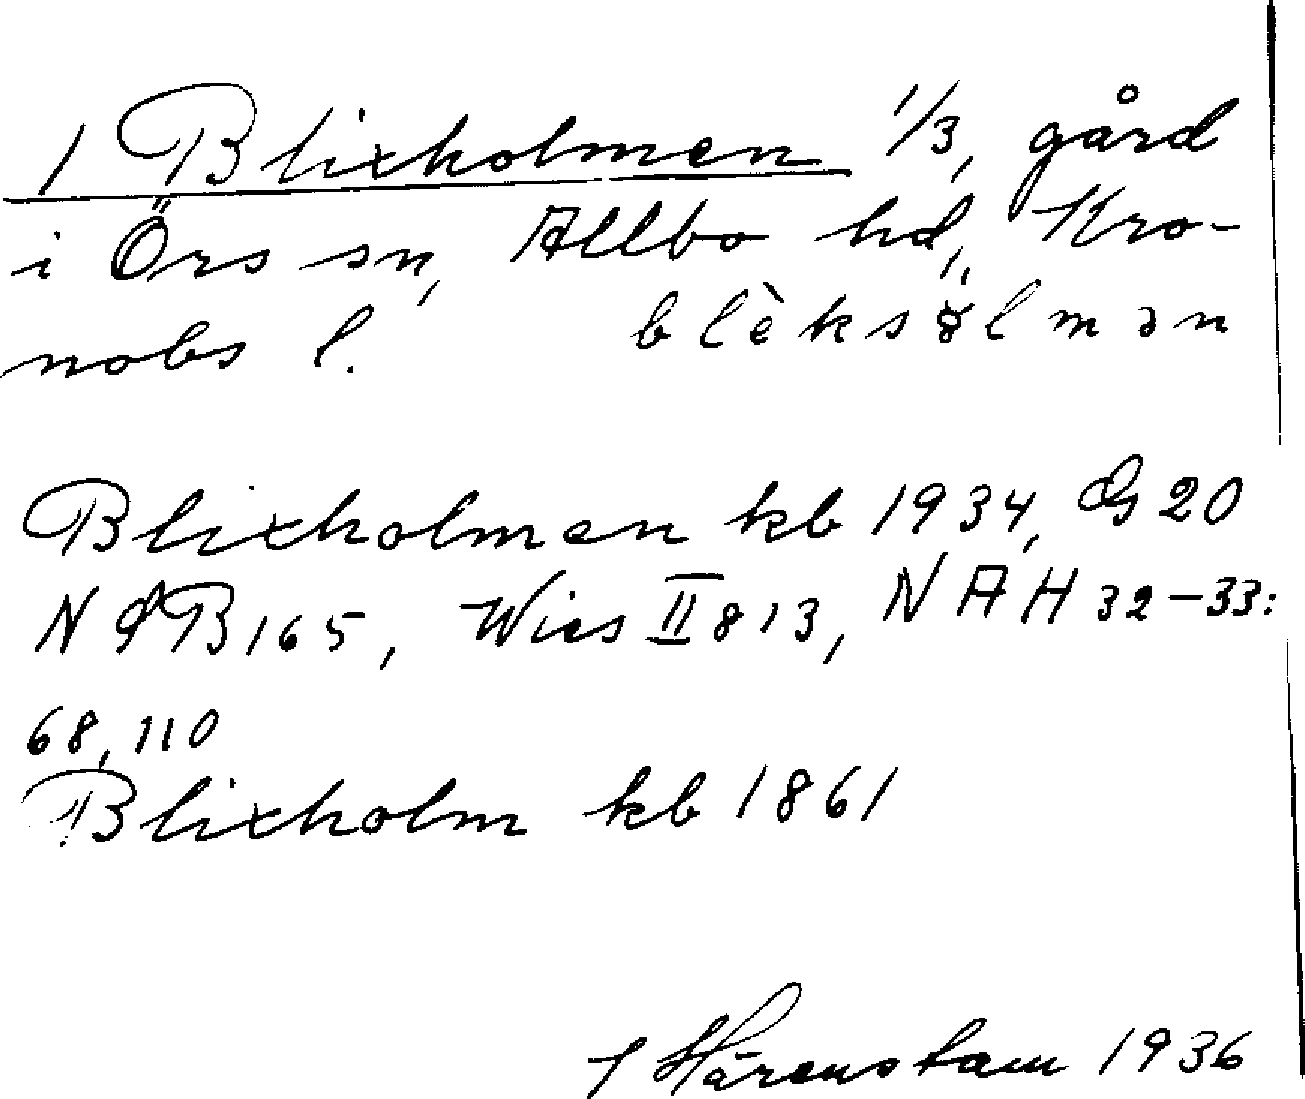 1 Blixholmen 1/3, gård
i Örs sn, Allbo hd, Kro-
nobs l. blèksəlmən
Blixholmen kb 1934, G 20
NGB 165, Wies II 813, NAH 32-33:
68, 110
Blixholm kb 1861
Härenstam 1936